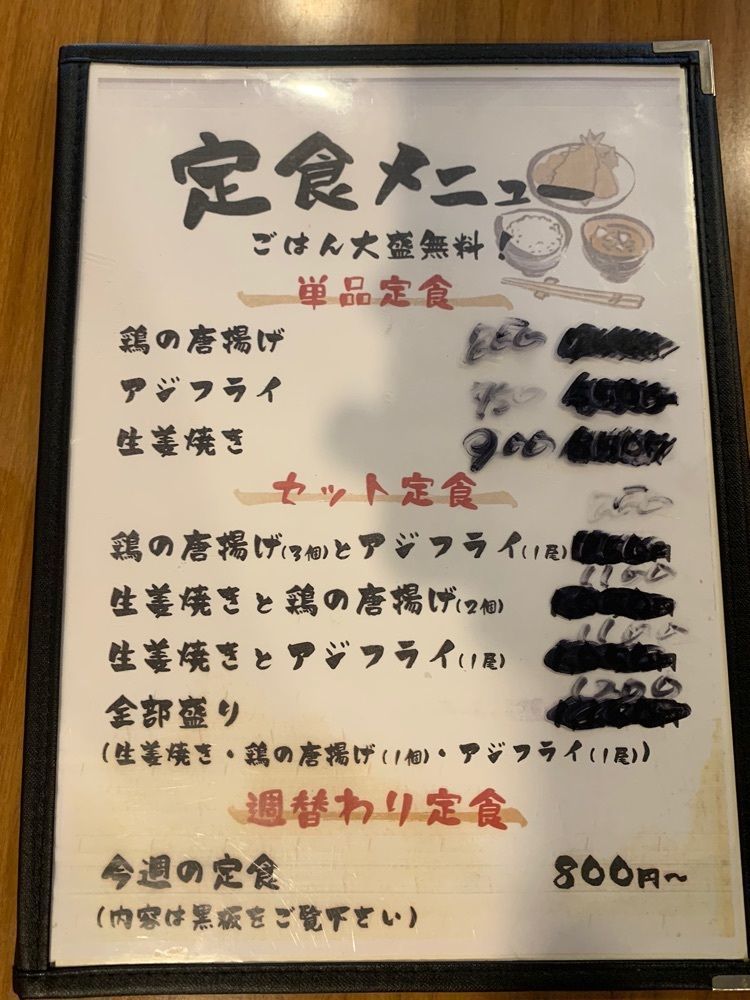 定食メニュー
ごはん大盛無料！
単品定食
鶏の唐揚げ
アジフライ
生姜焼き 900
セット定食
鶏の唐揚げ(3個)とアジフライ(1尾)
1100
生姜焼きと鶏の唐揚げ(2個)
1100
生姜焼きとアジフライ(1尾)
1200
全部盛り
(生姜焼き・鶏の唐揚げ(1個)・アジフライ(1尾))
週替わり定食
今週の定食 800円～
(内容は黒板をご覧下さい)